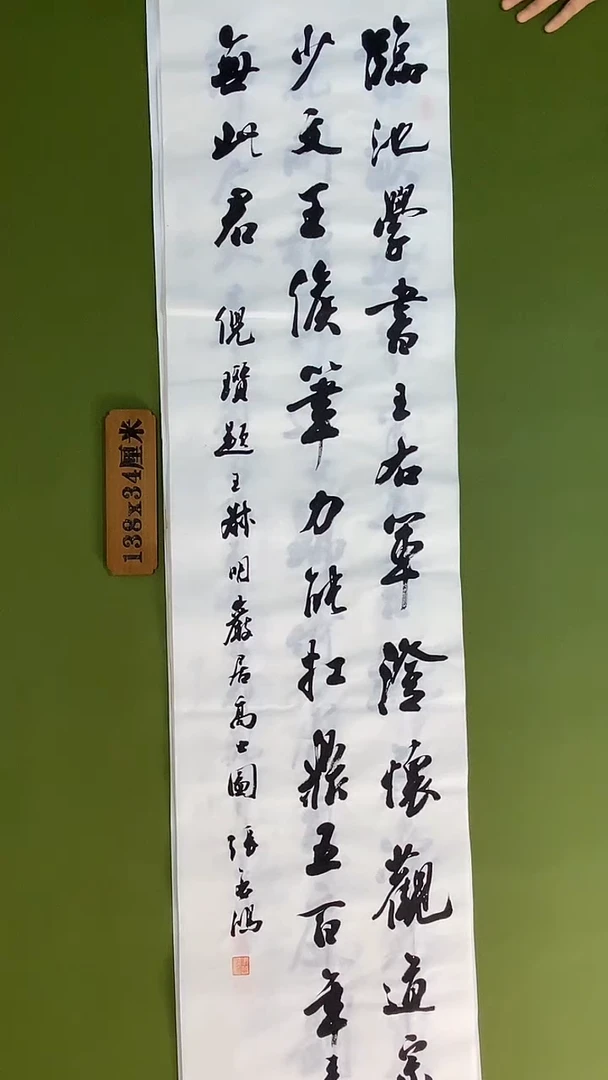 臨池學書王右軍澄懷觀道宗
少文王侯筆力能扛鼎五百年
無此君 倪瓚題王叔明巖居高士圖 張鴻
138x34厘米